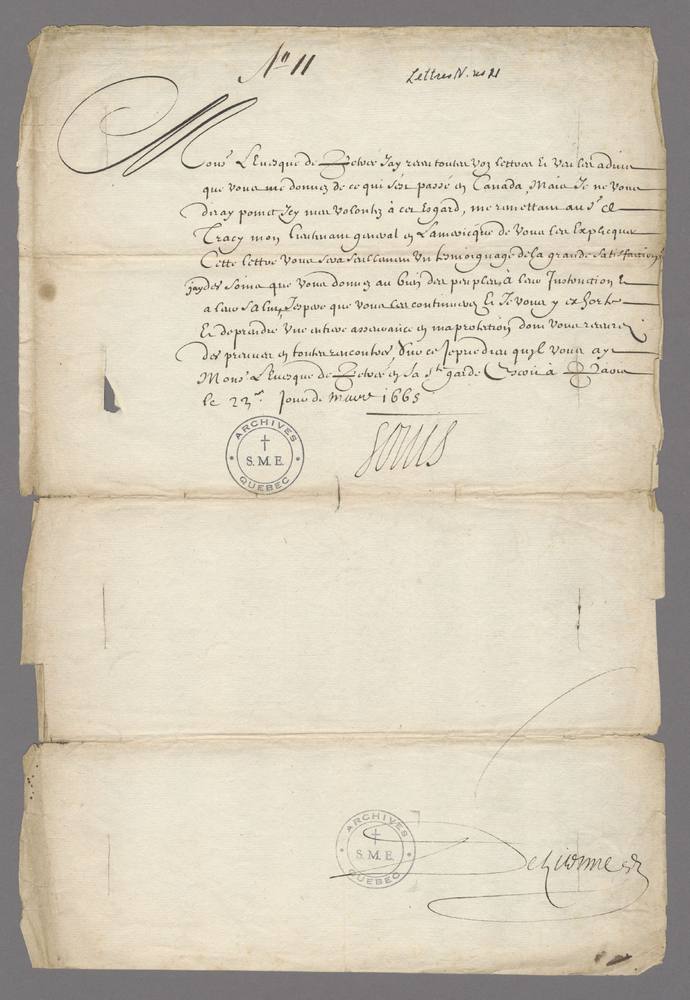 No 11
Lettres N. no 21
Mons.r L'Evesque de Petrée J'ay receu toutes voz lettres Et veu les advis
que vous me donnez de ce qui s'est passé en Canada, Mais Je ne vous
diray point Icy mes volontez à cet Esgard, me remettant au S.r de
Tracy mon lieutenant general en Lamericque de vous les Explicquer
Cette lettre vous sera seullement Un tesmoignage de la grande satisfaction q
jay des soins que vous donnez au bien des peuples, à leur Instruction Et
a leur salut, J'espere que vous les continuerez Et Je vous y exhorte
Et de prendre Une entiere asseurance en ma protection dont vous recevrez
des preuves en toutes rencontres, Sur ce Je prie dieu qu'il vous ayt
Mons.r L'Evesque de Petrée en sa s.te garde Escrit à Paris
le 23.me Jour de Mars 1665
Louis
ARCHIVES
S.M.E.
QUEBEC
ARCHIVES
S.M.E.
QUEBEC
De Lionne